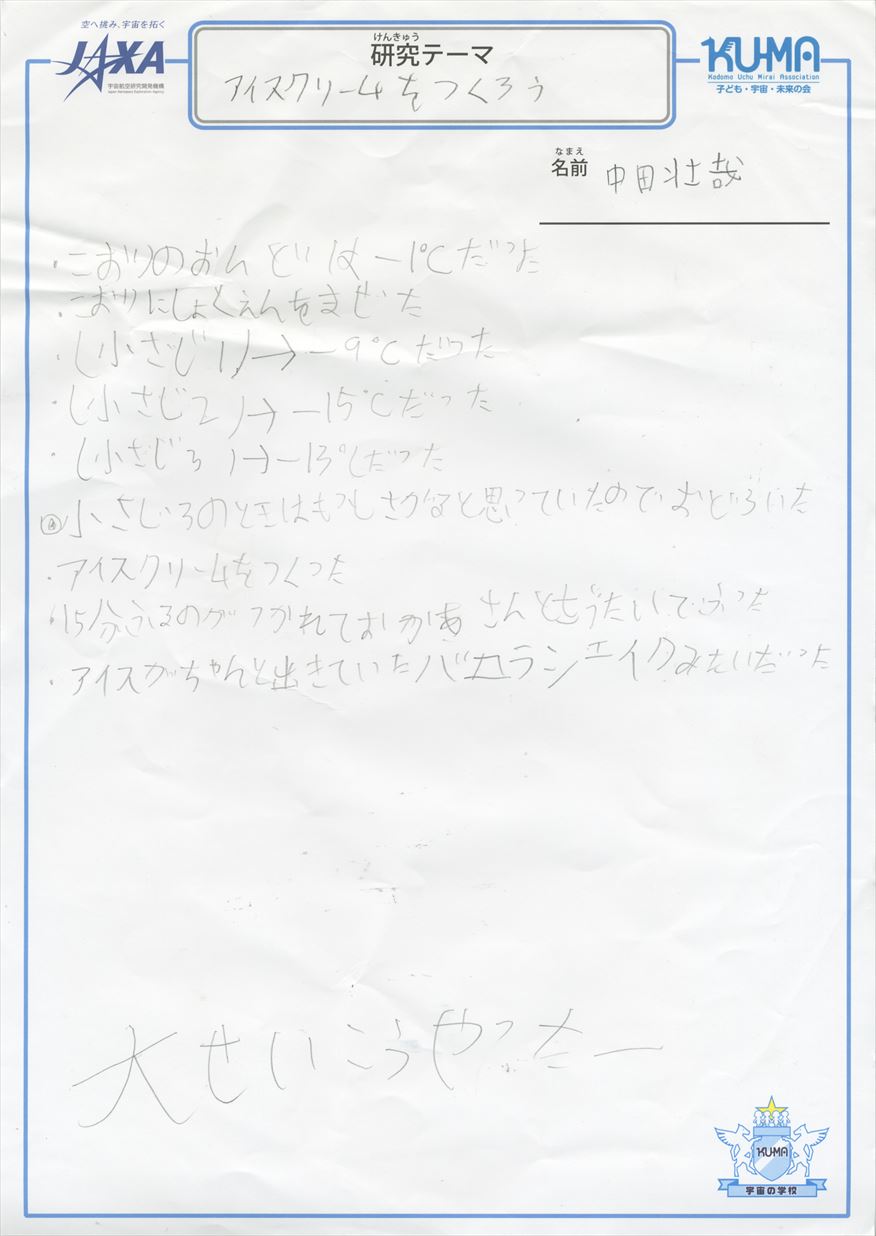 空へ挑み、宇宙を拓く
JAXA
宇宙航空研究開発機構
Japan Aerospace Exploration Agency
けんきゅう
研究テーマ
アイスクリームをつくろう
KU-MA
Kodomo Uchu Mirai Association
子ども・宇宙・未来の会
なまえ
名前 中田壮哉
・こおりのおんどは－1℃だった
・こおりにしょくえんをまぜた
・(小さじ1)→－9℃だった
・(小さじ2)→－15℃だった
・(小さじ3)→－13℃だった
小さじ3のときはもっとさがると思っていたのでおどろいた
・アイスクリームをつくった
・15分ふるのがつかれておかあさんとこうたいでふった
・アイスがちゃんと出きていたバニラシェイクみたいだった
大せいこうやったー
KU-MA
宇宙の学校